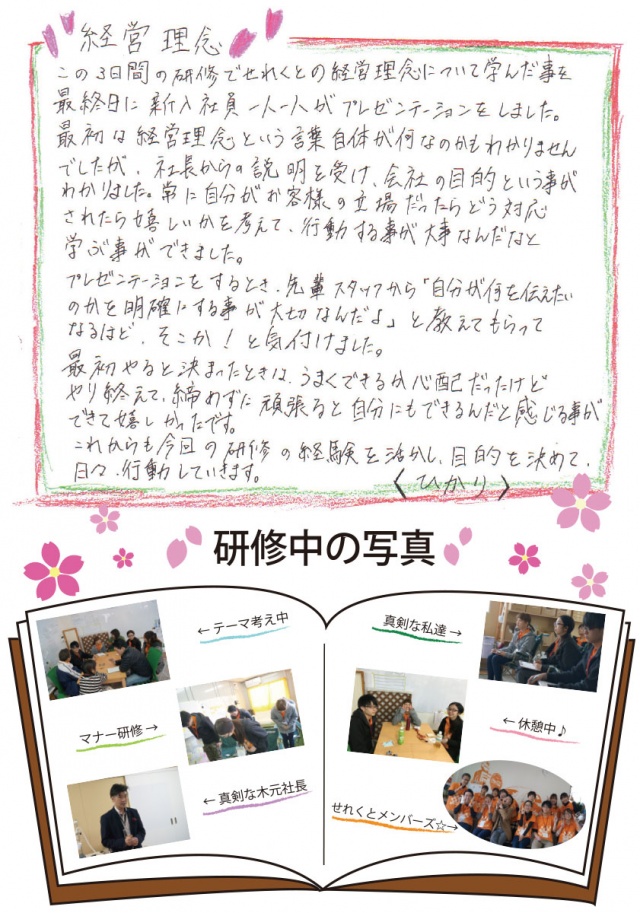 経営理念
この3日間の研修でせれくとの経営理念について学んだ事を
最終日に新入社員一人一人がプレゼンテーションをしました。
最初は経営理念という言葉自体が何なのかもわかりません
でしたが、社長からの説明を受け、会社の目的という事が
わかりました。常に自分がお客様の立場だったらどう対応
されたら嬉しいかを考えて、行動する事が大事なんだなと
学ぶ事ができました。
プレゼンテーションをするとき、先輩スタッフから「自分が何を伝えたい
のかを明確にする事が大切なんだよ」と教えてもらって
なるほど、そこか!と気付けました。
最初やると決まったときは、うまくできるか心配だったけど
やり終えて、締めずに頑張ると自分にもできるんだと感じる事が
できて嬉しかったです。
これからも今回の研修の経験を活かし、目的を決めて、
日々、行動していきます。
〈ひかり〉
研修中の写真
←テーマ考え中
マナー研修→
←真剣な木元社長
真剣な私達→
←休憩中♪
せれくとメンバーズ☆→